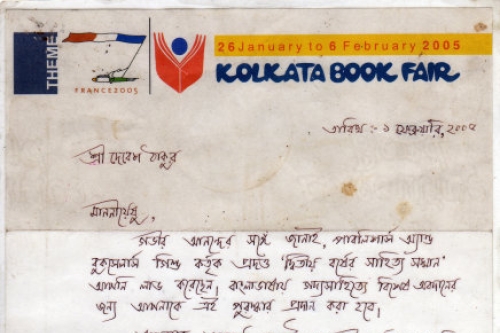 THEME
FRANCE2005
26 January to 6 February 2005
KOLKATA BOOK FAIR
তারিখ : ১ ফেব্রুয়ারি, ২০০৫
শ্রী দেবেশ ঠাকুর
মাননীয়েষু,
গভীর আনন্দের সঙ্গে জানাই, পাবলিশার্স অ্যান্ড
বুকসেলার্স গিল্ড কর্তৃক প্রদত্ত 'দ্বিতীয় বর্ষের সাহিত্য সম্মান'
আপনি লাভ করেছেন। বাংলাভাষায় পদ্যসাহিত্যে বিশেষ অবদানের
জন্য আপনাকে এই পুরস্কার প্রদান করা হবে।